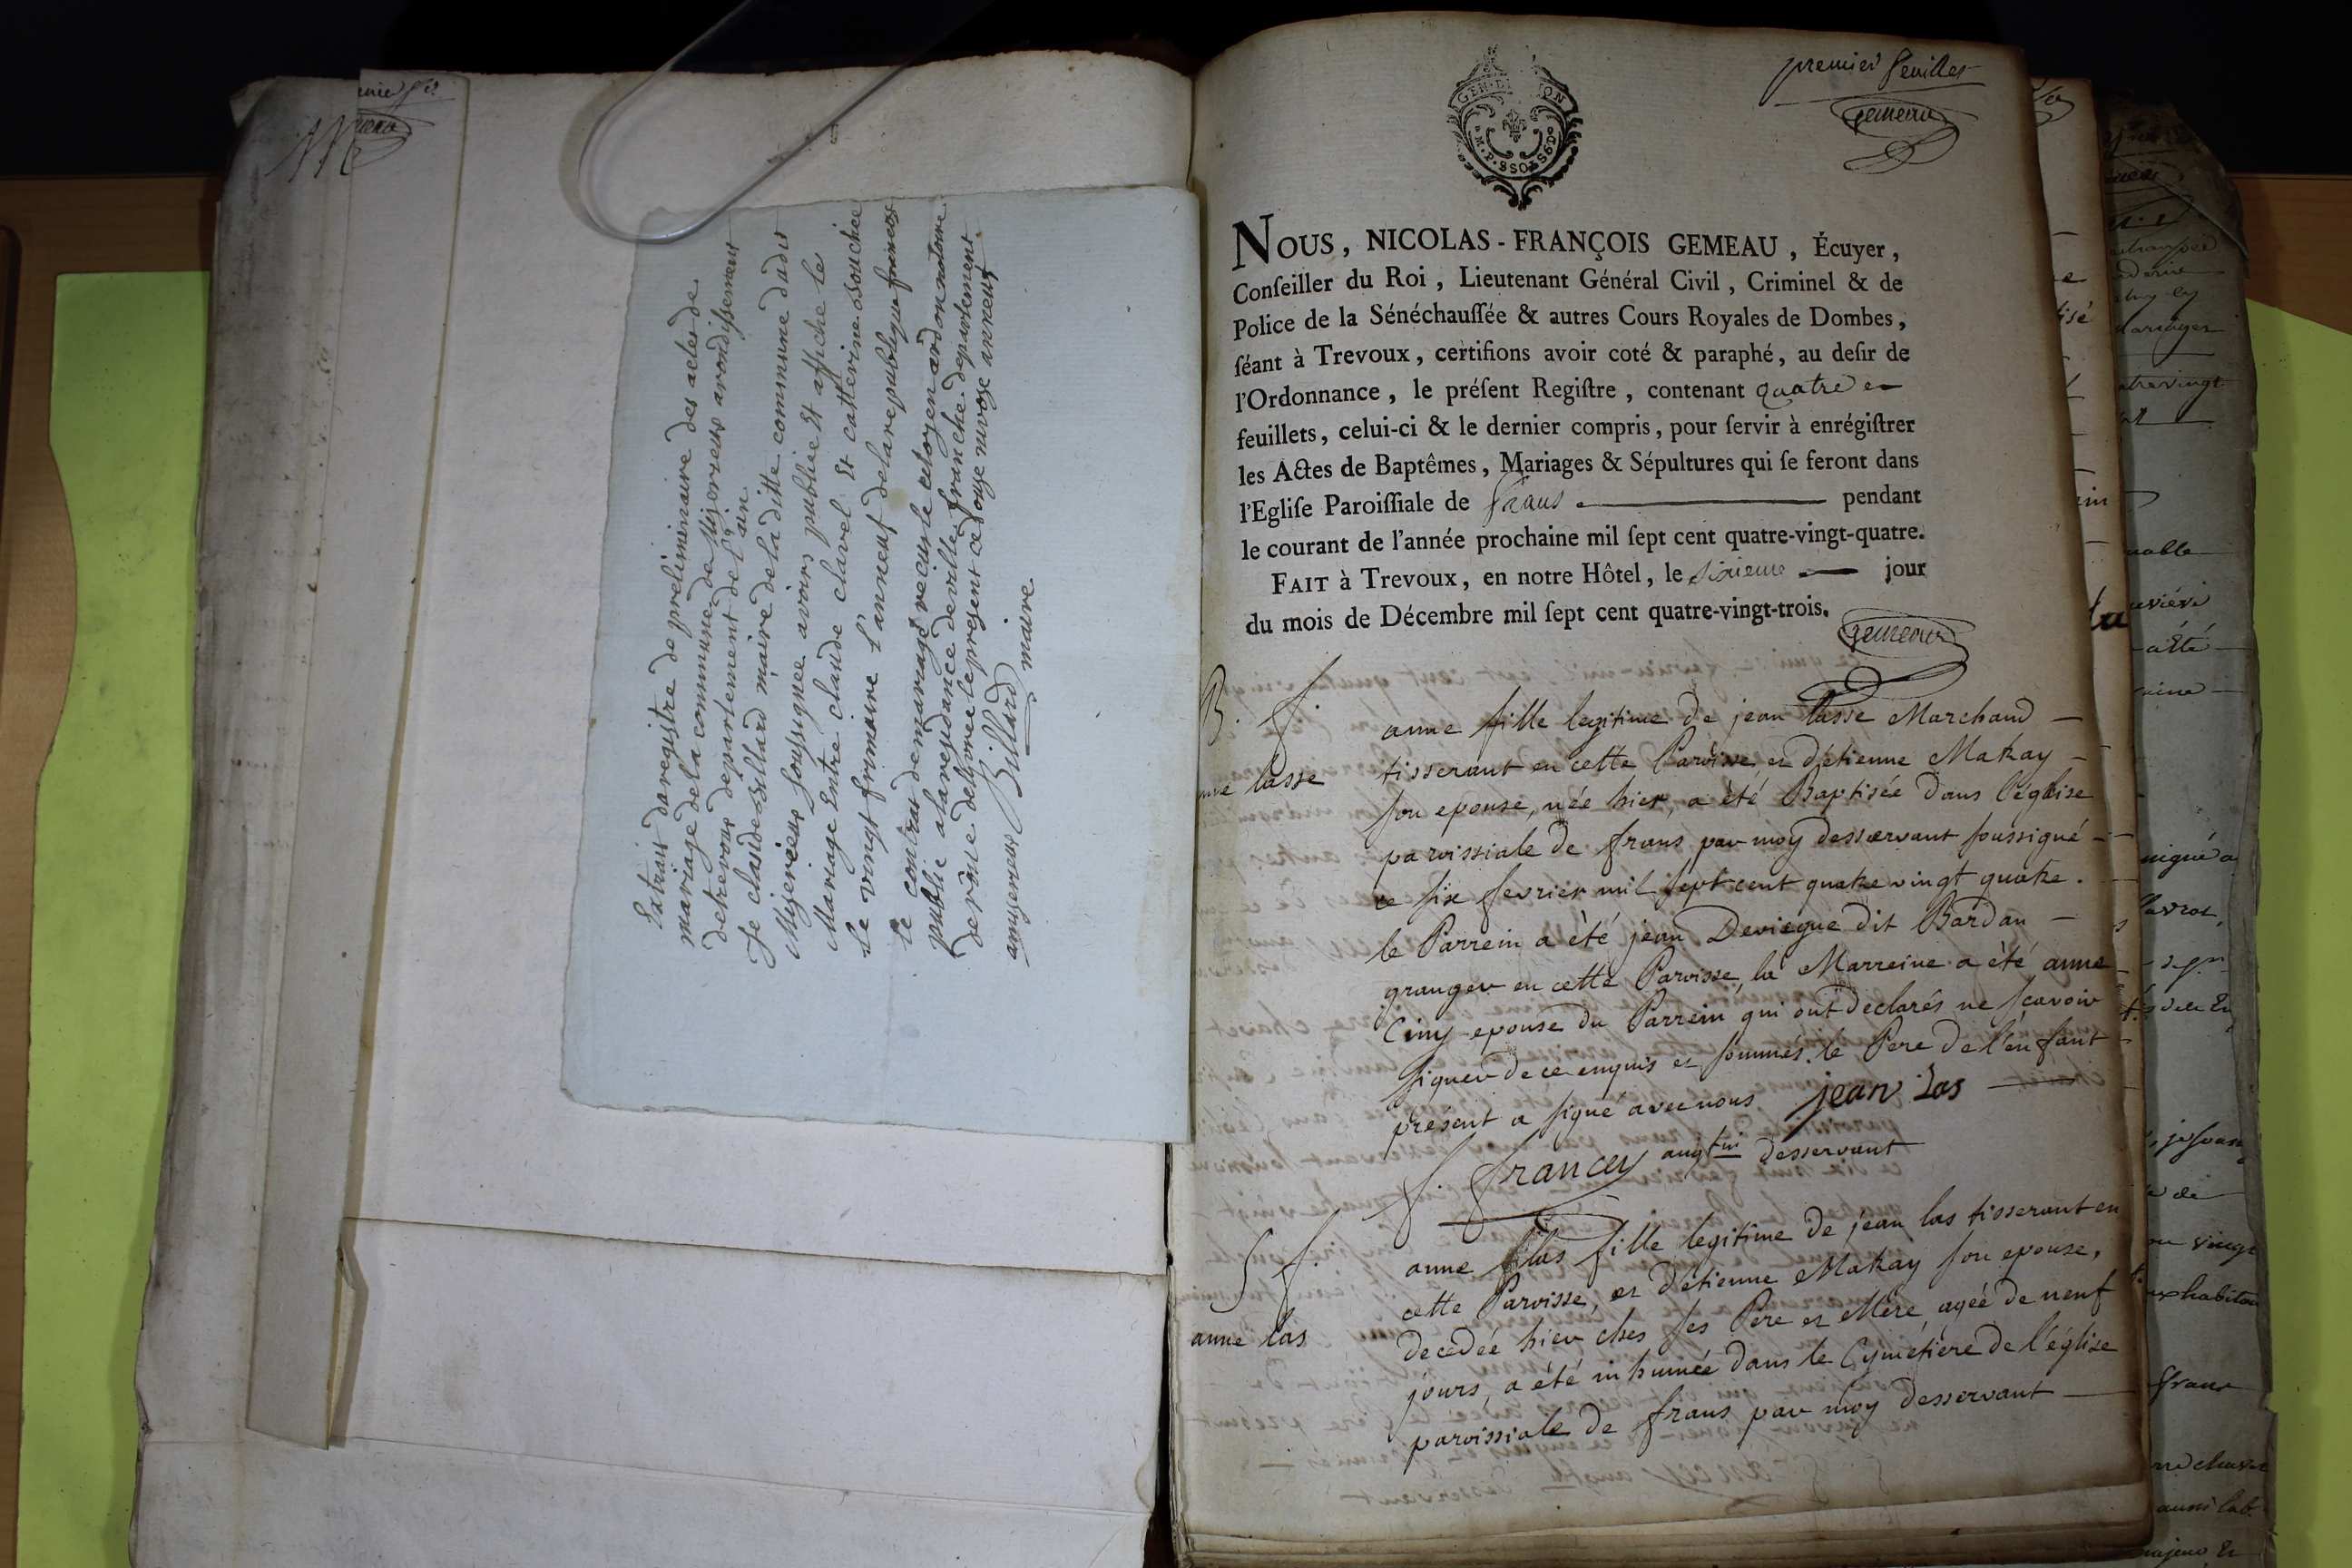 Extrait du registre de preliminaire des actes de
mariage de la commune de Mizerieux arondissement
de trevoux departement de l'ain
Je claude Billard maire de la ditte commune dudit
Mizerieux soussignee avoirs publiee et affiche le
Mariage Entre claude clavel et catterine souchee
Le vingt frimaire l'an neuf de la republique francoz
le contrat de mariage recu sur le citoyen ardon notaire
public a la residance de ville franche departement
de rone delivree le present ce douze nivoze an neuf
a mizerieux Billard maire
premier feuillet
gemeau
GEN. DE LYON
NOUS, NICOLAS-FRANÇOIS GEMEAU, Écuyer,
Conſeiller du Roi, Lieutenant Général Civil, Criminel & de
Police de la Sénéchauſſée & autres Cours Royales de Dombes,
ſéant à Trevoux, certifions avoir coté & paraphé, au deſir de
l'Ordonnance, le préſent Regiſtre, contenant quatre
feuillets, celui-ci & le dernier compris, pour ſervir à enrégiſtrer
les Actes de Baptêmes, Mariages & Sépultures qui ſe feront dans
l'Egliſe Paroiſſiale de frans pendant
le courant de l'année prochaine mil ſept cent quatre-vingt-quatre.
FAIT à Trevoux, en notre Hôtel, le sixieme jour
du mois de Décembre mil ſept cent quatre-vingt-trois.
gemeau
B. f.
lasse
anne fille legitime de jean lasse Marchand
tisserant en cette Paroisse et d'etienne Matray
son epouse, née hier, a été Baptisée dans l'eglise
paroissiale de frans par moy desservant soussigné
ce six fevrier mil sept cent quatre vingt quatre.
le Parrein a été jean Devicque dit Bardan
granger en cette Paroisse, la Marreine a été anne
Ciny epouse du Parrein qui ont declarés ne sçavoir
signer de ce enquis et sommés. le Pere de l'enfant
présent a signé avec nous jean las
f. francey aug.tin desservant
S. f.
anne las
anne las fille legitime de jean las tisserant en
cette Paroisse, et d'etienne Matray son epouse,
decedée hier ches ses Pere et Mere, agée de neuf
jours, a été inhumée dans le Cymetiere de l'église
paroissiale de frans par moy desservant